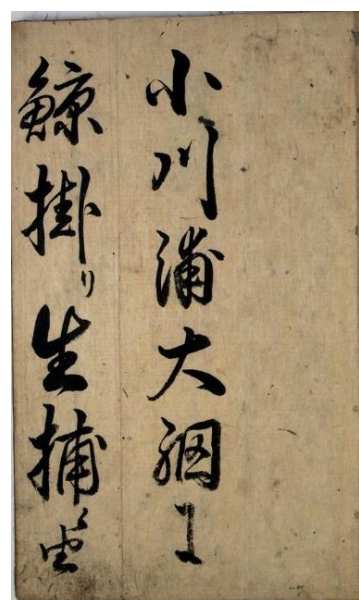 小川浦大網ニ
鯨掛り生捕